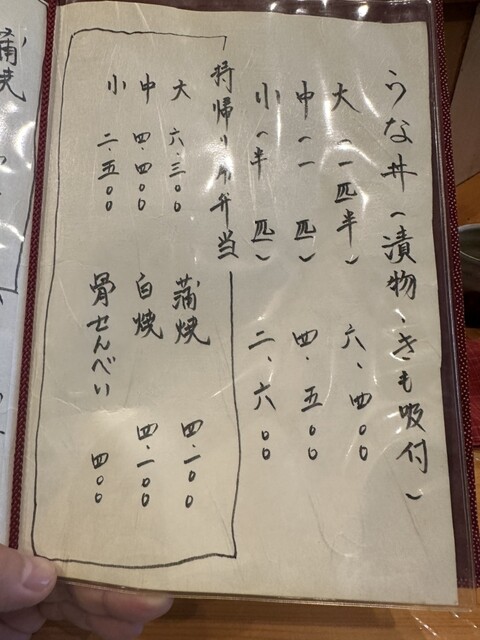 うな丼（漬物、きも吸付）
大（一匹半） 六・四〇〇
中（一匹） 四・五〇〇
小（半匹） 二・六〇〇
持帰りウ弁当
大 六・三〇〇
中 四・四〇〇
小 二・五〇〇
蒲焼 四・一〇〇
白焼 四・一〇〇
骨せんべい 四〇〇
蒲焼